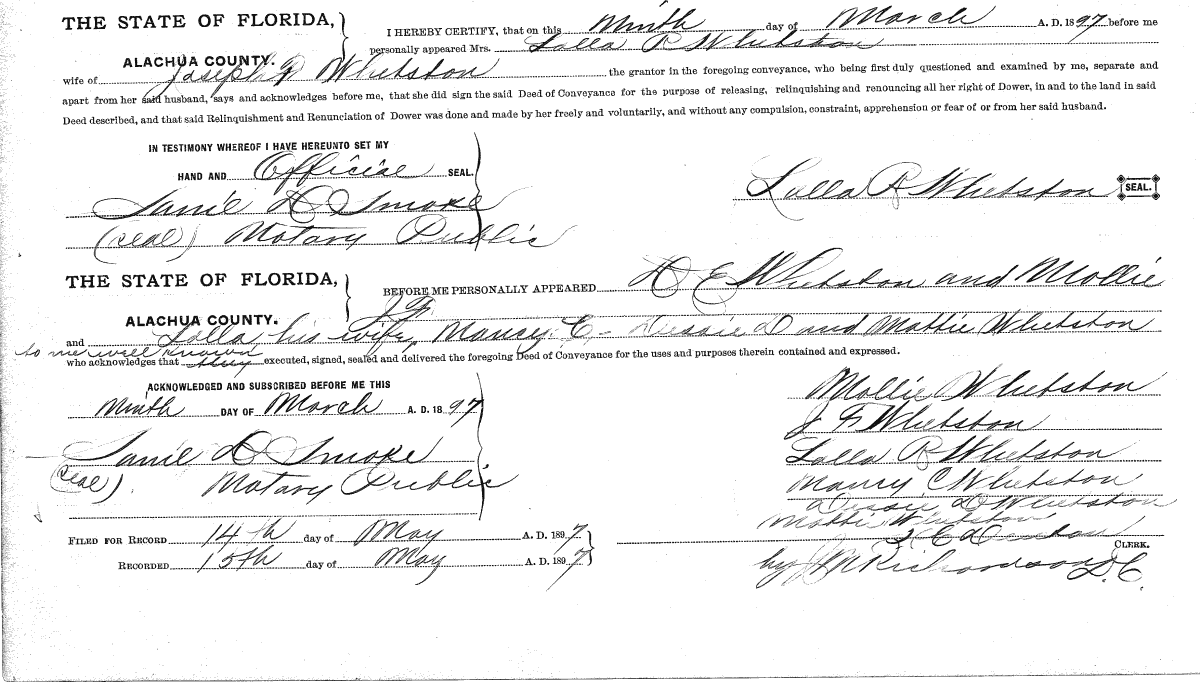 THE STATE OF FLORIDA,
ALACHUA COUNTY.
I HEREBY CERTIFY, that on this Ninth day of March A. D. 1897 before me
personally appeared Mrs. Lolla R Whetston
wife of Joseph F Whetston the grantor in the foregoing conveyance, who being first duly questioned and examined by me, separate and
apart from her said husband, says and acknowledges before me, that she did sign the said Deed of Conveyance for the purpose of releasing, relinquishing and renouncing all her right of Dower, in and to the land in said
Deed described, and that said Relinquishment and Renunciation of Dower was done and made by her freely and voluntarily, and without any compulsion, constraint, apprehension or fear of or from her said husband.
IN TESTIMONY WHEREOF I HAVE HEREUNTO SET MY
HAND AND Official SEAL.
Lolla R Whetston SEAL.
D Smoke
(seal) Notary Public
THE STATE OF FLORIDA,
ALACHUA COUNTY.
BEFORE ME PERSONALLY APPEARED D E Whetston and Mollie
J F
and Lolla his wife, Nancy C- Dessie D and Mattie Whetston
to me well known
who acknowledges that they executed, signed, sealed and delivered the foregoing Deed of Conveyance for the uses and purposes therein contained and expressed.
ACKNOWLEDGED AND SUBSCRIBED BEFORE ME THIS
Ninth DAY OF March A. D. 1897
D Smoke
(seal). Notary Public
Mollie Whetston
J F Whetston
Lolla R Whetston
Nancy C Whetston
Dessie D Whetston
Mattie Whetston
FILED FOR RECORD 14th day of May A. D. 1897.
RECORDED 15th day of May A. D. 1897
CLERK.
by J M Richardson D.C.